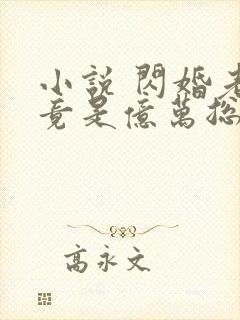 小說 閃婚老
竟是億萬總
高永文